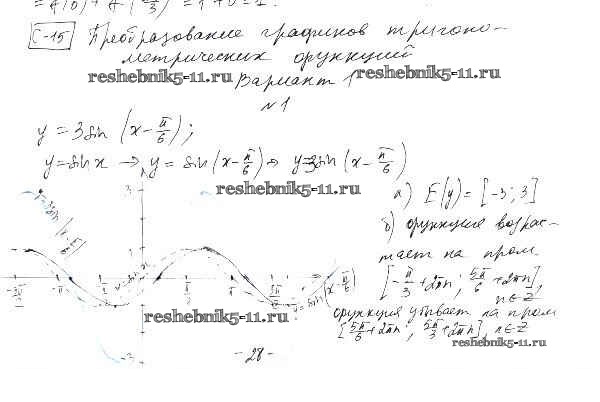 = f(0) + f(π/3) = 1 + 0 = 1.
С-15 Преобразование графиков тригоно-
метрических функций
reshebnik5-11.ru
reshebnik5-11.ru
Вариант 1
№1
y = 3sin (x - π/6);
y = sin x → y = sin (x - π/6) → y = 3sin (x - π/6)
reshebnik5-11.ru
а) E(y) = [-3; 3]
б) функция возрас-
тает на пром.
[-π/3 + 2πn; 5π/6 + 2πn],
n∈Z
функция убывает на пром
[5π/6 + 2πn; 5π/3 + 2πn], n∈Z
3
y = sin x
-π
π
y = sin (x - π/6)
-3
reshebnik5-11.ru
reshebnik5-11.ru
- 28 -